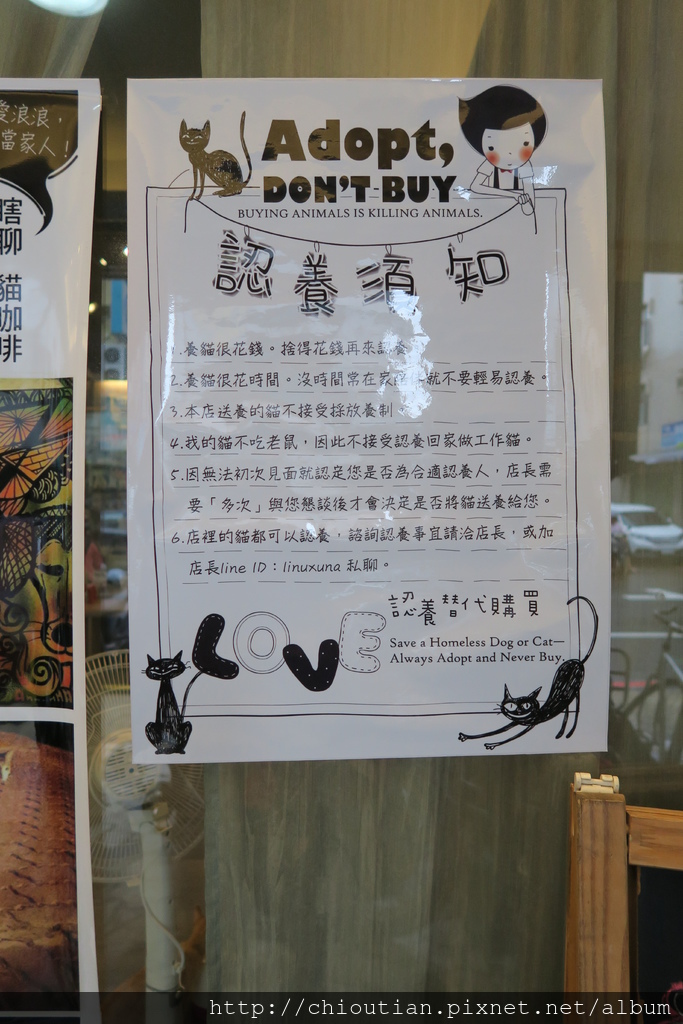 愛浪浪，
當家人！
瞎聊
貓咖啡
Adopt,
DON'T BUY
BUYING ANIMALS IS KILLING ANIMALS.
認養須知
1.養貓很花錢。捨得花錢再來認養
2.養貓很花時間。沒時間常在家 就不要輕易認養。
3.本店送養的貓不接受採放養制。
4.我的貓不吃老鼠，因此不接受認養回家做工作貓。
5.因無法初次見面就認定您是否為合適認養人，店長需
要「多次」與您懇談後才會決定是否將貓送養給您。
6.店裡的貓都可以認養，諮詢認養事宜請洽店長，或加
店長line ID：linuxuna 私聊。
認養替代購買
LOVE
Save a Homeless Dog or Cat—
Always Adopt and Never Buy.
http://chioutian.pixnet.net/album